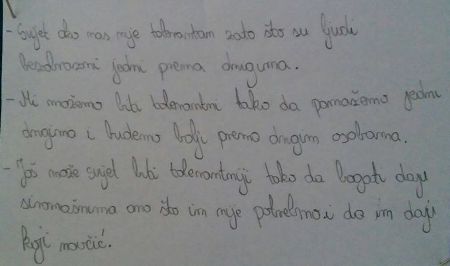 - Svijet oko nas nije tolerantan zato što su ljudi
bezobrazni jedni prema drugima.
- Mi možemo biti tolerantni tako da pomažemo jedni
drugima i budemo bolji prema drugim osobama.
- Još može svijet biti tolerantniji tako da bogati daju
siromašnima ono što im nije potrebno i da im daju
koji novčić.